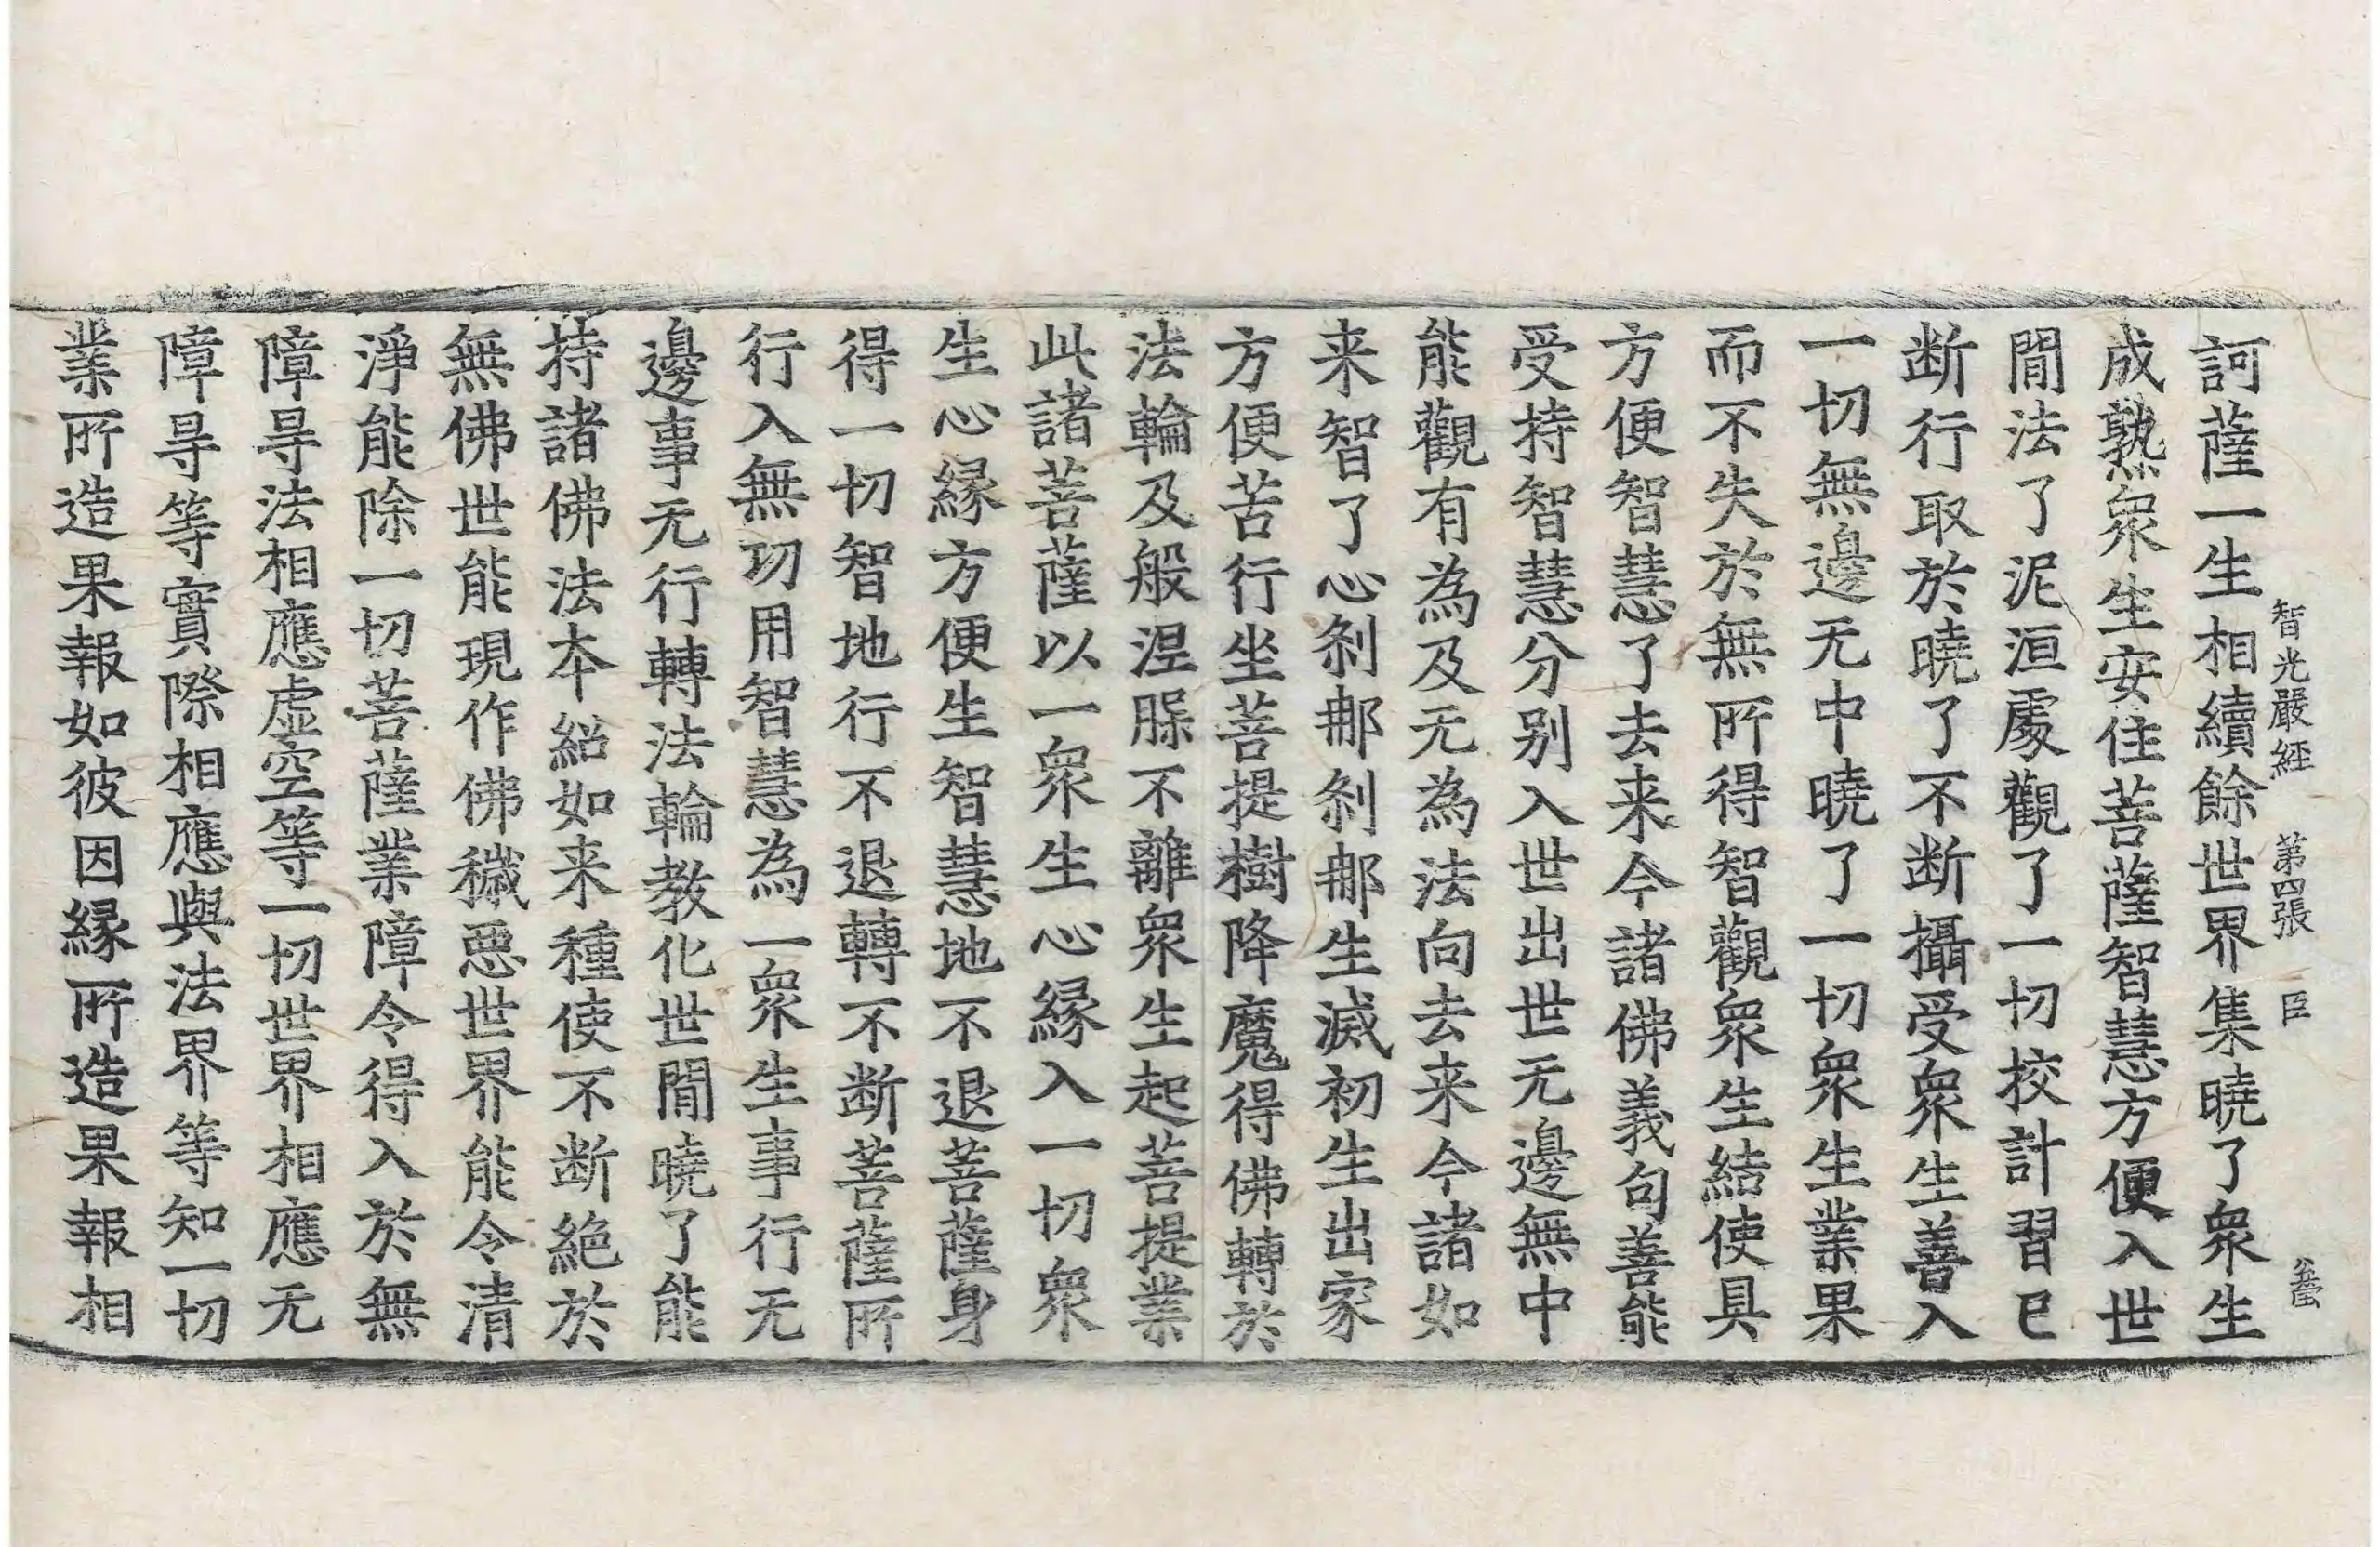 智光嚴經 第四張 臣
訶薩一生相續餘世界集曉了衆生
成熟衆生安住菩薩智慧方便入世
閒法了泥洹處觀了一切挍計習已
断行取於曉了不断攝受衆生善入
一切無邊无中曉了一切衆生業果
而不失於無所得智觀衆生結使具
方便智慧了去来今諸佛義句善能
受持智慧分别入世出世无邊無中
能觀有為及无為法向去来今諸如
来智了心剎那剎那生滅初生出家
方便苦行坐菩提樹降魔得佛轉於
法輪及般涅槃不離衆生起菩提業
此諸菩薩以一衆生心縁入一切衆
生心縁方便生智慧地不退菩薩身
得一切智地行不退轉不断菩薩所
行入無功用智慧為一衆生事行无
邊事无行轉法輪教化世閒曉了能
持諸佛法本紹如来種使不断絶於
無佛世能現作佛穢惡世界能令清
淨能除一切菩薩業障令得入於無
障㝵法相應虚空等一切世界相應无
障㝵等實際相應與法界等知一切
業所造果報如彼因縁所造果報相